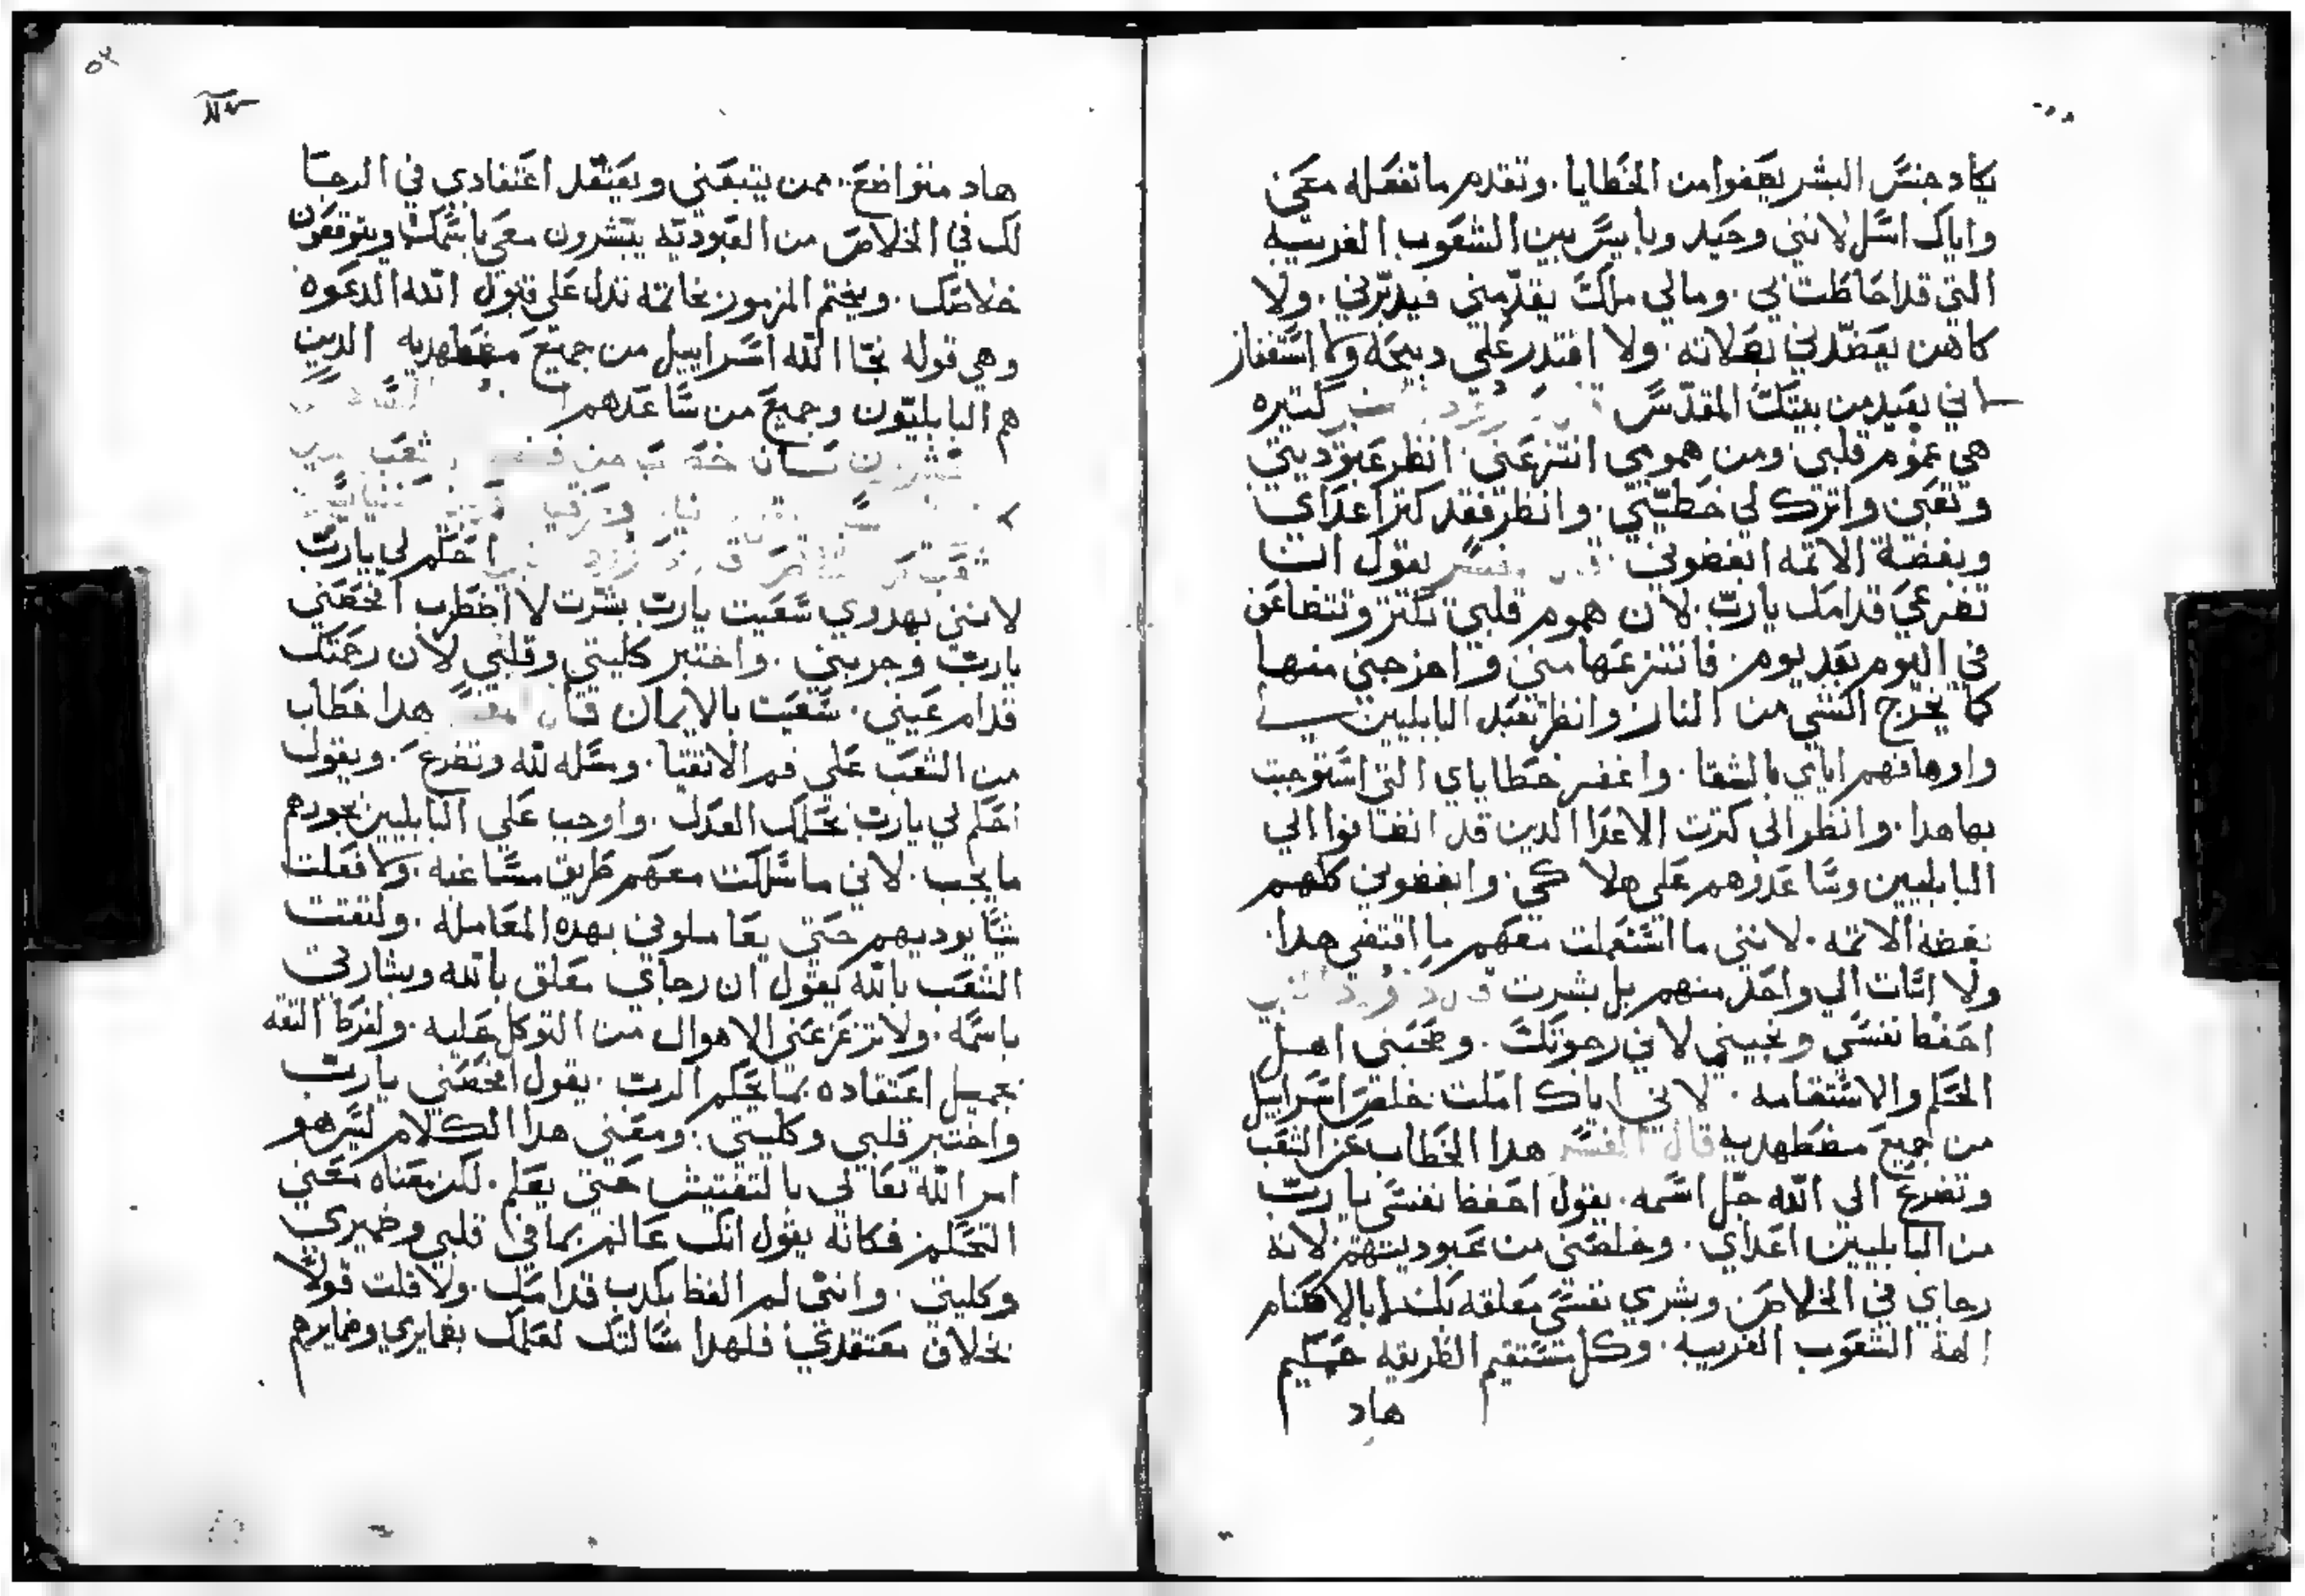 يكاد جنس البشر يعفوا من الخطايا. وتقدم ما تفعله معي
واياك اسل لانني وحيد وبايس بين الشعوب الغريبه
التي قد احاطت بي. ومالي ملك يقدمني فيدبرني. ولا
كاهن يعضدني بصلاته. ولا اقتدر علي دبيحه ولا استغفار
اني بعيد من بيتك المقدس كتيره
هي غموم قلبي ومن همومي انتزعني. انظر عبوديتي
وتعبي واترك لي خطيتي. وانظر فقد كتر اعداي
وبغضة الاتمه ابغضوني يقول انت
تضرعي قدامك يارب. لان هموم قلبي تكتر وتتضاعف
في اليوم بعد يوم. فانتزعها مني واخرجني منها
كما يخرج الشي من النار وانظر تعبد البابليين لي
وارهافهم اياي بالشقا. واغفر خطاياي التي استوجبت
بها هدا. وانظر الي كترت الاعدا الدين قد انضافوا الي
البابليين وساعدوهم علي هلاكي. وابغضوني كلهم
بغضه الاتمه. لانني ما اشتعلت معهم ما اقتضي هدا
ولا اسات الي واحد منهم بل بشرت
احفظ نفسي ونجيني لاني رجوتك. وصحبني اهل
الحكم والاستقامه. لاني اياك املت خلص اسراييل
من جميع مضطهديه قال المفسر هدا الخطاب عن الشعب
وتضرع الي الله جل اسمه. يقول احفظ نفسي يارب
من البابليين اعداي. وخلصني من عبوديتهم لانه
رجاي في الخلاص وبشري نفسي معلقه بك لا بالاصنام
الهة الشعوب الغريبه. وكل مستقيم الطريقه حكيم
هاد
هاد متواضع. ممن يتبعني ويعتقد اعتقادي في الرجا
لك في الخلاص من العبوديه يبشرون معي باسمك ويتوقعون
خلاصك. ويختم المزمور بخاتمه تدل علي قبول الله الدعوه
وهي قوله نجا الله اسراييل من جميع مضطهديه الدين
هم البابليون وجميع من ساعدهم
احكم لي يارب
لانني بهدوي سعيت يارب بشرت لا اضطرب امحصني
يارب وجربني. واختبر كليتي وقلبي لان رحمتك
قدام عيني. سعيت بالايمان قال المفسر هدا خطاب
من الشعب علي فم الاتقيا. ومسله لله وتضرع. ويقول
احكم لي يارب بحكمك العدل. واوجب علي البابليين بجورهم
ما يجب. لاني ما سلكت معهم طريق مشاغبه. ولا فعلت
شيا يوديهم حتي يعاملوني بهده المعامله. ولتقت
الشعب بالله يقول ان رجاي معلق بالله وبشارتي
باسمه. ولا تزعزعني الاهوال من التوكل عليه. ولفرط التقه
بجميل اعتقاده بما يحكم الرب. يقول امحصني يارب
واختبر قلبي وكليتي. ومعني هدا الكلام ليس هو
امر الله تعالي بالتفتيش حتي يعلم. لكن معناه معني
التحكم فكانه يقول انك عالم بما في قلبي وضميري
وكليتي. وانني لم الفظ بكدب قدامك. ولا قلت قولا
بخلاف معتقدي فلهدا سالتك لعلمك بضمايري وضمايرهم